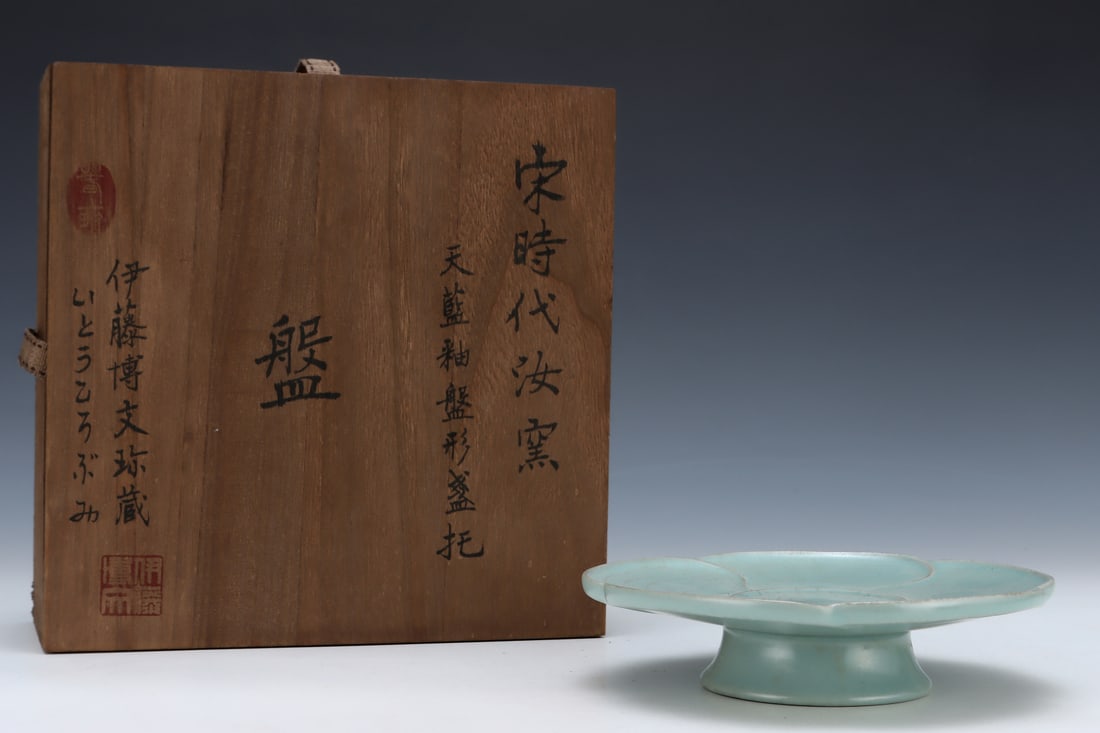 宋時代汝窯
天藍釉盤形盞托
盤
伊藤博文珍蔵
いとうひろぶみ